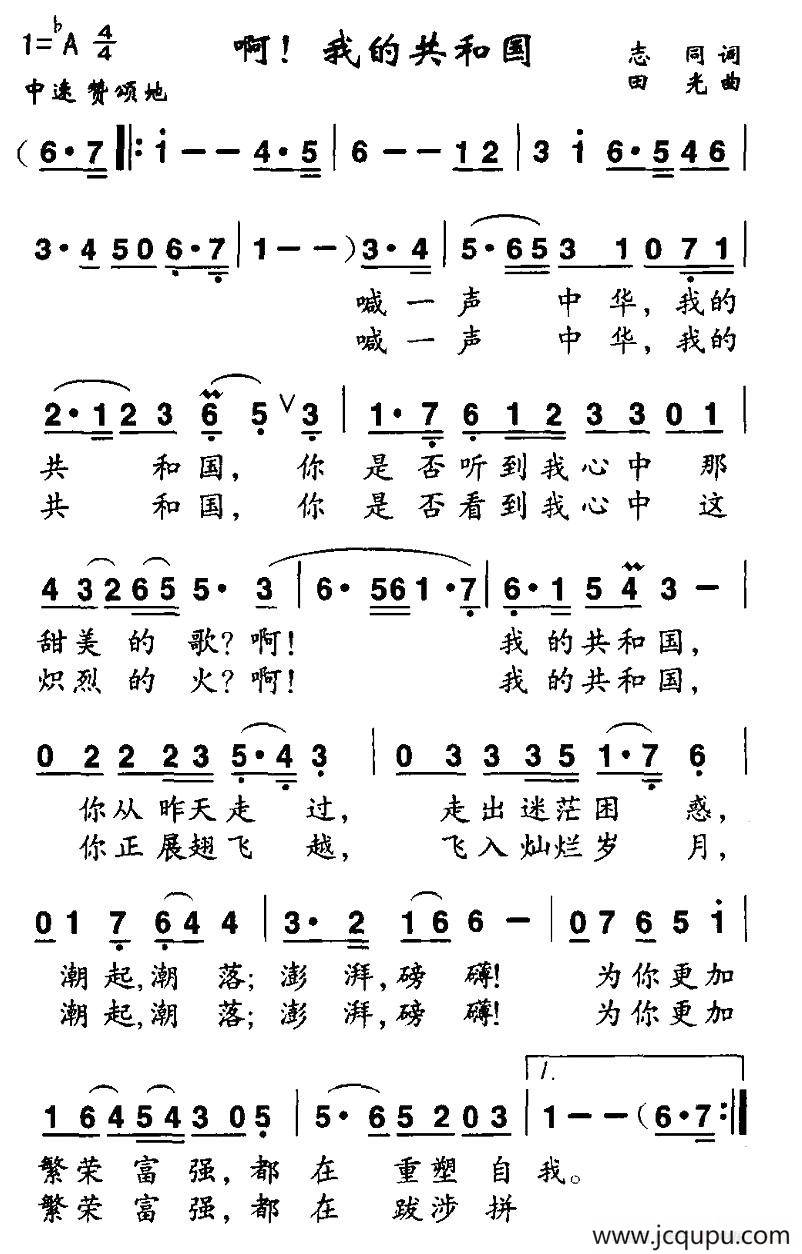 1=♭A 4/4 啊！我的共和国 志同词
中速 赞颂地 田光曲
(6·7 ‖: i - - 4·5 | 6 - - 1 2 | 3 i 6·5 4 6 |
3·4 5 0 6·7 | 1 - - ) 3·4 | 5·6 5 3 1 0 7 1 |
喊一声 中华，我的
喊一声 中华，我的
2·1 2 3 6 5 ∨ 3 | 1·7 6 1 2 3 3 0 1 |
共 和国，你 是否听到我心中 那
共 和国，你 是否看到我心中 这
4 3 2 6 5 5· 3 | 6· 5 6 1·7 | 6·1 5 4 3 - |
甜美的歌？啊！ 我的共和国，
炽烈的火？啊！ 我的共和国，
0 2 2 2 3 5·4 3 | 0 3 3 3 5 1·7 6 |
你从昨天走 过， 走出迷茫困 惑，
你正展翅飞 越， 飞入灿烂岁 月，
0 1 7 6 4 4 | 3·2 1 6 6 - | 0 7 6 5 i |
潮起，潮 落；澎 湃，磅礴！ 为你更加
潮起，潮 落；澎 湃，磅礴！ 为你更加
1.
1 6 4 5 4 3 0 5 | 5·6 5 2 0 3 | 1 - - (6·7 :‖
繁荣 富强，都 在 重塑 自我。
繁荣 富强，都 在 跋涉 拼
www.jcqupu.com